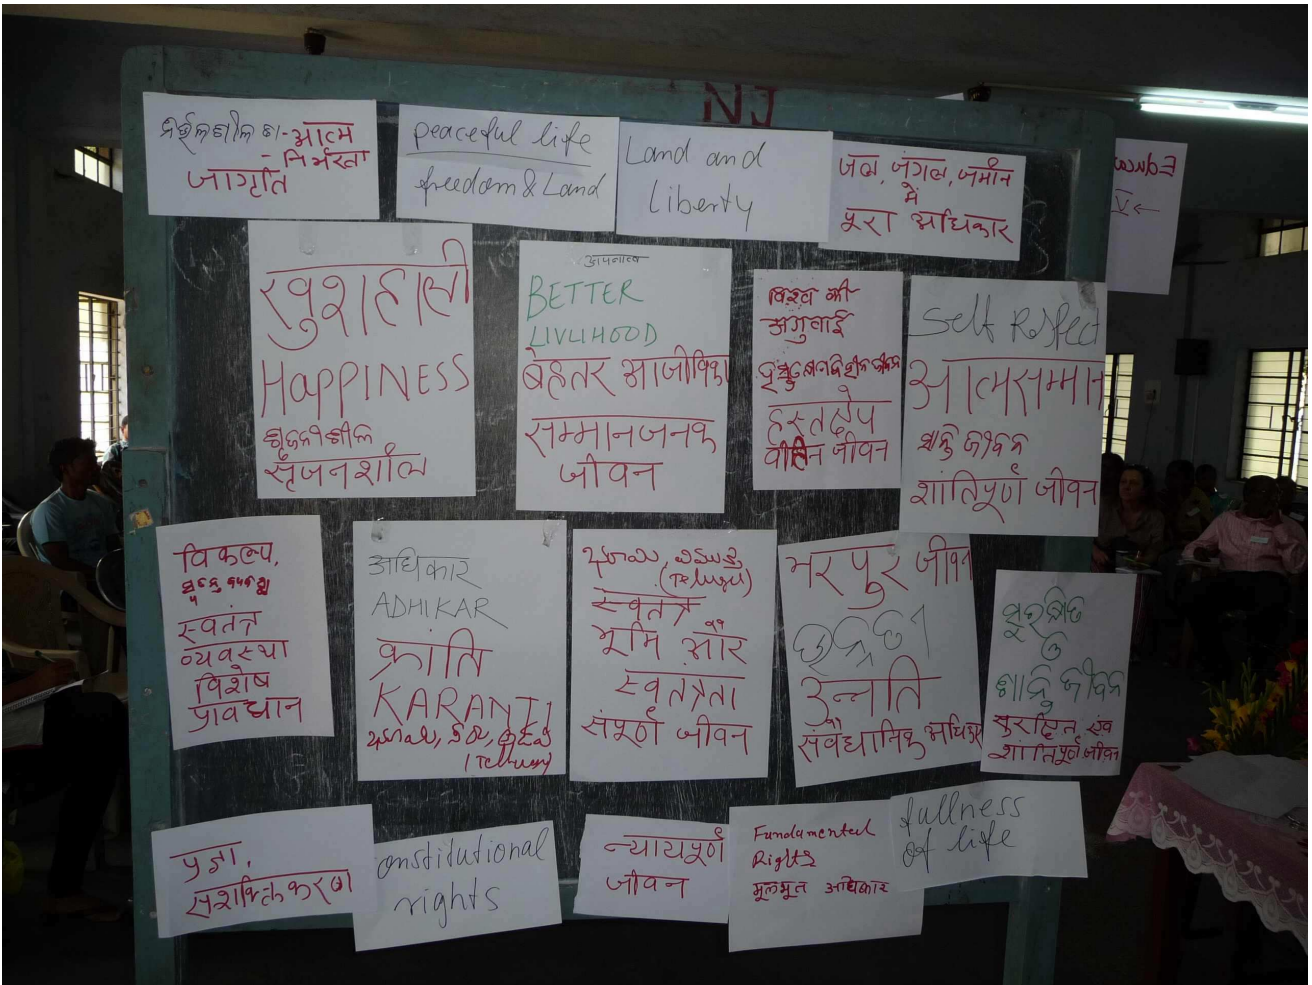 NJ
आत्म
- निर्भरता
जागृति
peaceful life
freedom & Land
Land and
liberty
जल, जंगल, जमीन
में
पूरा अधिकार
खुशहाली
HAPPINESS
सृजनशील
BETTER
LIVLIHOOD
बेहतर आजीविका
सम्मानजनक
जीवन
विश्व की
अगुवाई
हस्तक्षेप
जीवन
Self Respect
आत्मसम्मान
ଶାନ୍ତି ଜୀବନ
शांतिपूर्ण जीवन
विकल्प,
स्वतंत्र
व्यवस्था
विशेष
प्रावधान
अधिकार
ADHIKAR
क्रांति
KARANTI
(Telugu)
(Telugu)
स्वतंत्र
भूमि और
स्वतंत्रता
संपूर्ण जीवन
भरपुर जीवन
ଉନ୍ନତି
उन्नति
संवैधानिक अधिकार
ସୁରକ୍ଷିତ
ଓ
ଶାନ୍ତି ଜୀବନ
सुरक्षित एंव
शांतिपूर्ण जीवन
प्रज्ञा,
सशक्तिकरण
onstitutional
rights
न्यायपूर्ण
जीवन
Fundamental
Rights
मूलभूत अधिकार
fullness
of life